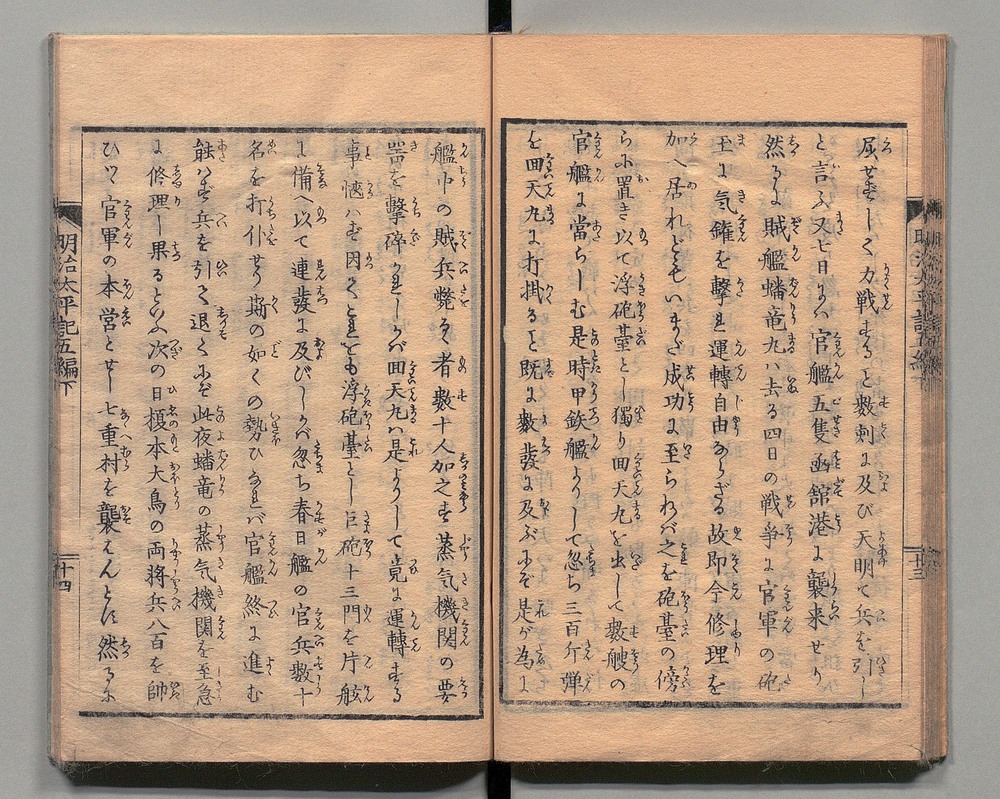 屈せずしく力戦すると数刺に及び天明て兵を引し
と言ふ又七日にハ官艦五隻函舘港に襲来せり
然るに賊艦蟠竜丸ハ去る四日の戦争に官軍の砲
玉に気鑵を撃れ運轉自由ならざる故即今修理を
加へ居れどもいまだ成功に至られバ之を砲臺の傍
らに置き以て浮砲臺とし獨り回天丸を出して数艘の
官艦に當らしむ是時甲鉄艦よりして忽ち三百斤弾
を回天丸に打掛ると既に数發に及ぶにぞ是が為に
艦中の賊兵斃るゝ者數十人加之ず蒸気機関の要
噐を擊碎かれしかバ回天丸ハ是よりして竟に運轉する
事愜ハず因てこれをも浮砲臺とし巨砲十三門を片舷
に備へ以て連發に及びしかバ忽ち春日艦の官兵数十
名を打仆せり斯の如くの勢ひなれバ官艦終に進む
能はず兵を引て退くにぞ此夜蟠竜の蒸気機関を至急
に修理し果るといふ次の日榎本大鳥の両将兵八百を帥
ひつゝ官軍の本営とせし七重村を襲はんとに然るに
明治太平記五編下
十三
明治太平記五編下
十四